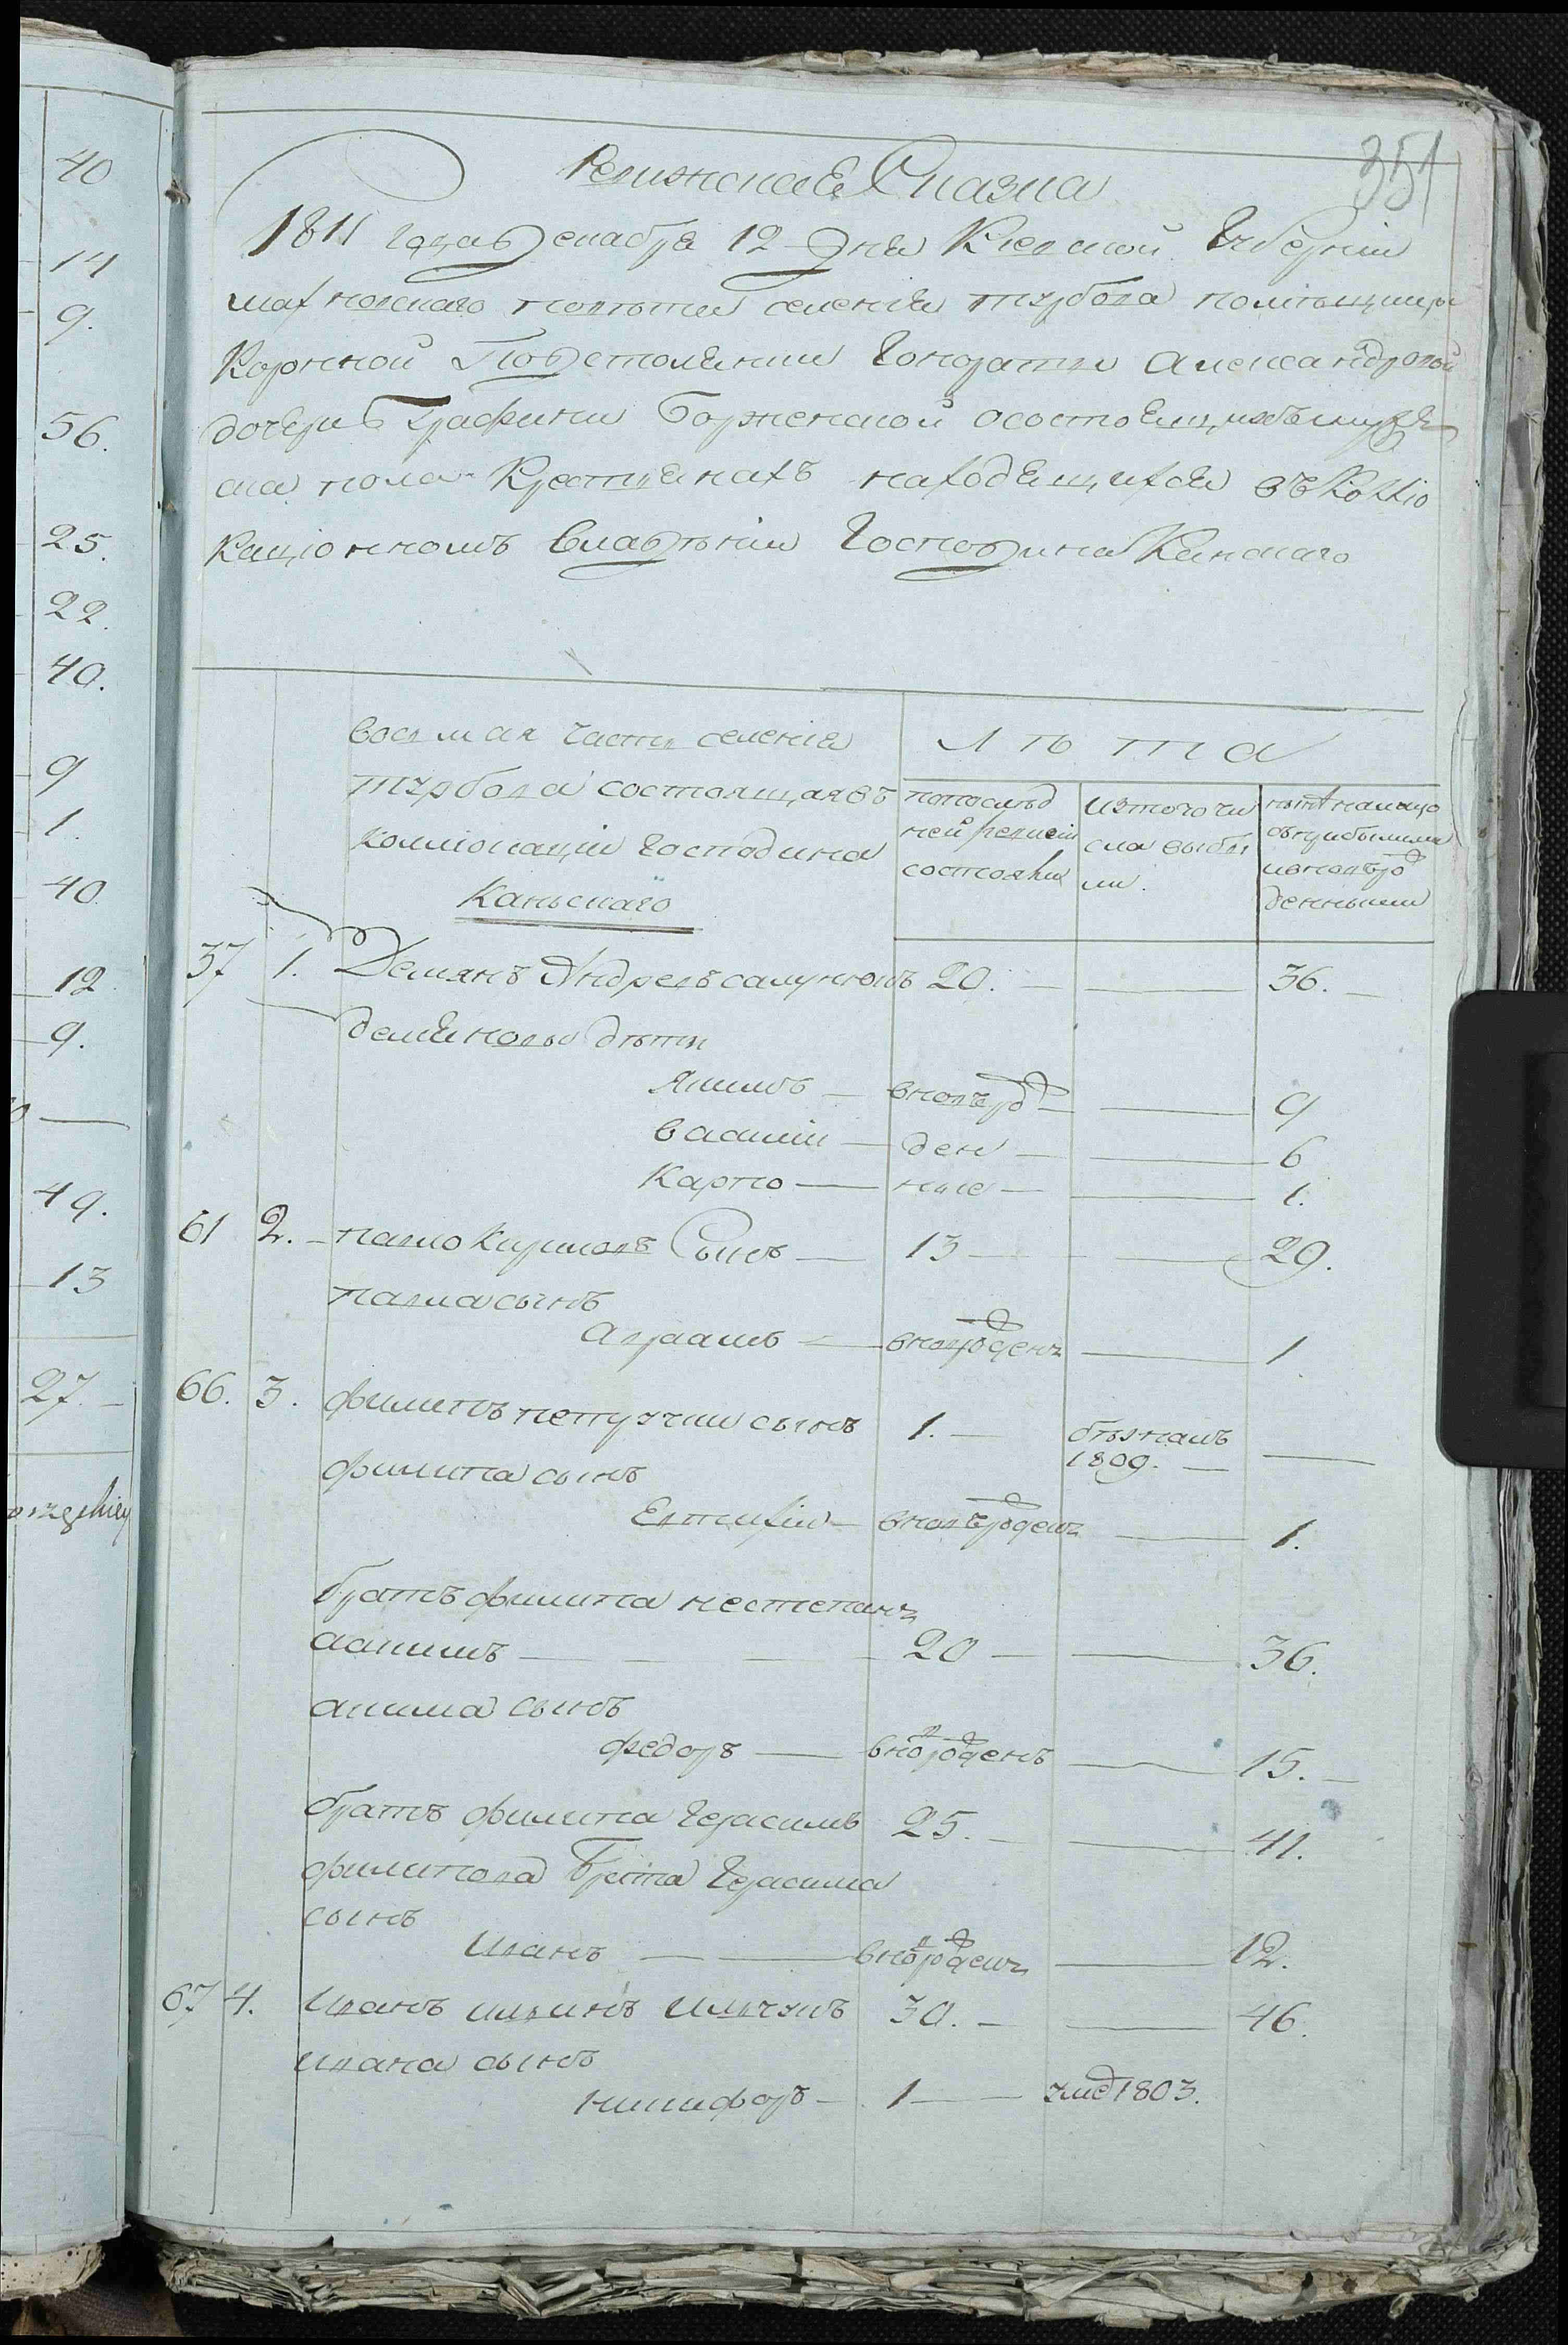 351
Ревижская Сказка
1811 года декабря 12 дня Киевской Губернiи
махновского повѣта селенiя турбова помѣщицы
Коронной Подстолянки Гонораты Александровой
дочери Графини Борженской осостоящихъ мужеска
пола Крестянахъ находящихся въ Коллио
кацiонномъ Владѣнiи Господина Канского
восмая часть селенiя
турбова состоящая въ
коллiокацiи господина
Каньского
Лѣта
попослѣд
ней ревизiи
состояли
изтого чи
сла выбы
ли.
нынѣ налицо
съприбылыми
иновъро
денными
37 1. Демянъ Андреевъ салунюкъ 20. — — 36. —
демяновы дѣти
Якимъ — вновъро — — 9
василiй — ден — — 6
Карпо — ные — — 1.
61 2. — павло Кириловъ Сынъ — 13 — — 29.
павла сынъ
Авраамъ — вноврденъ — 1
66. 3. филипъ петручик сынъ 1. — бѣжалъ 1809. — —
филипа сынъ
Евтихiй — вновъроденъ — 1.
братъ филипа нестепанъ
аакимъ — — — 20 — — 36.
акима сынъ
федоръ — внороденъ — 15. —
братъ филипа Герасимъ 25. — — 41.
филипова Брата Герасима
сынъ
Иванъ — — внороденъ — 12.
67 4. Иванъ ильинъ Ильчукъ 30. — — 46.
ивана сынъ
никифоръ — 1 — умер 1803.
40
14
9.
56.
25.
22.
40.
9
1.
40.
12
9.
49.
13
27. —